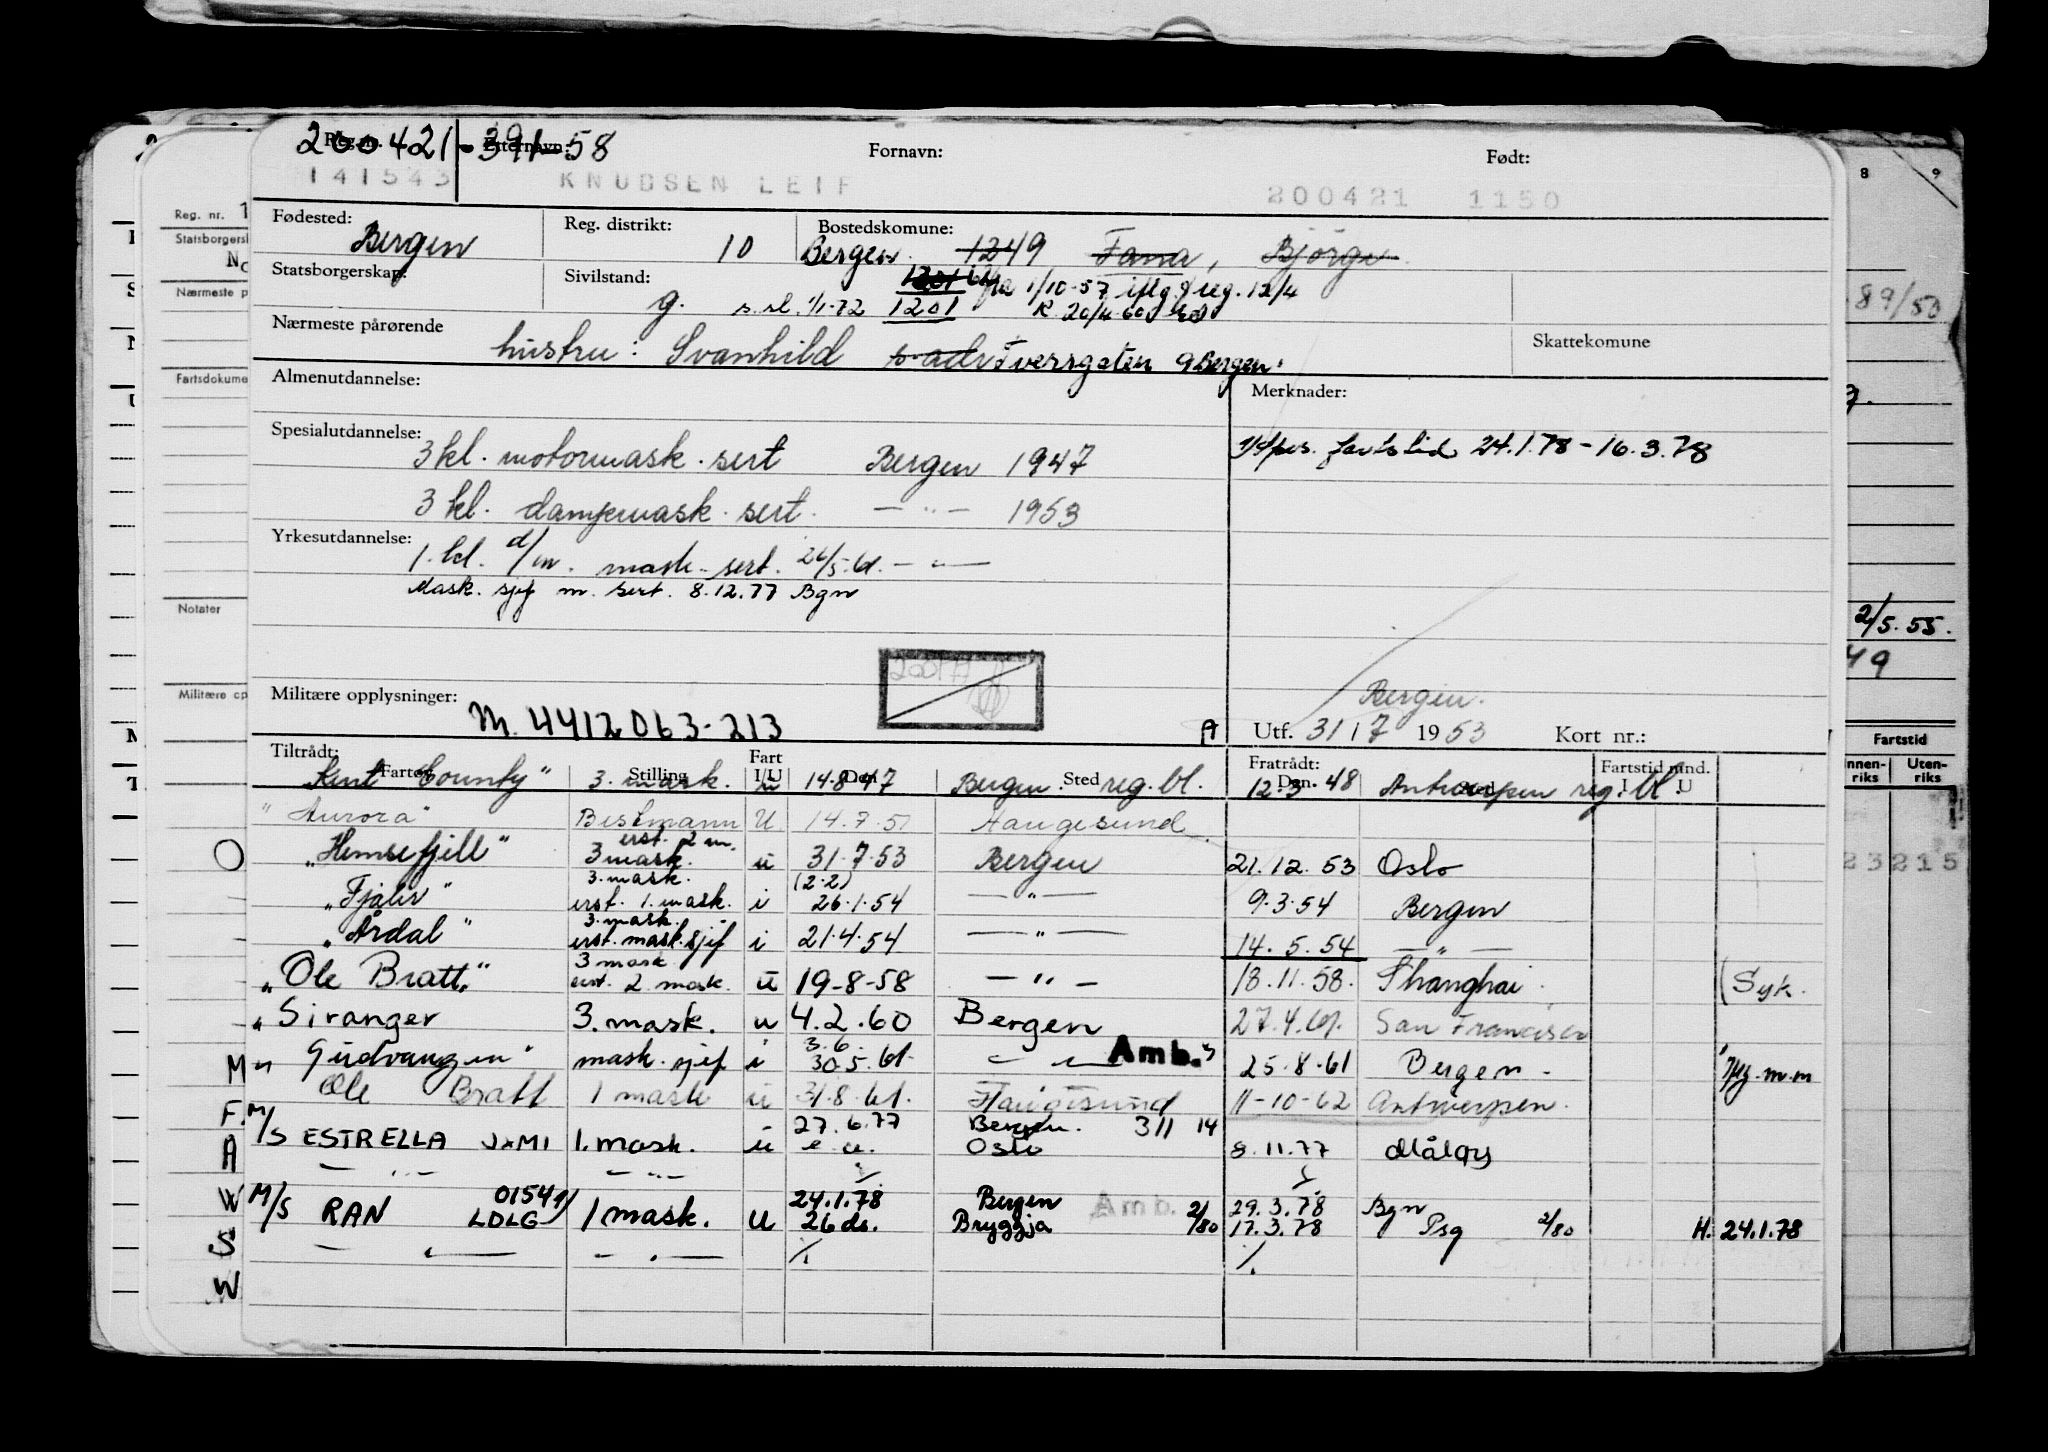 200421-391-58
Reg. nr. Etternavn: Fornavn: Født:
141543 KNUDSEN LEIF 200421 1150
Fødested: Bergen Reg. distrikt: 10 Bostedskomune: Bergen 1249 Fana, Bjørge
Statsborgerskap: Sivilstand: g. s.sl. 1/1-72 1201 fra 1/10-57 iflg. 12/4
1201 K. 20/4-60
Nærmeste pårørende hustru: Svanhild Tverrgaten 9 Bergen. Skattekomune
Almenutdannelse: Merknader:
Spesialutdannelse: 3 kl. motormask. sert Bergen 1947 fartstid 24.1.78-16.3.78
3 kl. dampmask. sert. — " — 1953
Yrkesutdannelse: 1. kl. d/m. mask. sert. 26/5-61. — " —
Mask. sjef m. sert. 8.12.77 Bgn
Militære opplysninger: M. 4412063-213
Bergen.
A Utf. 31/7 1953 Kort nr.:
Tiltrådt: Fratrådt:
Fartøy Stilling Fart I/U Den Sted Den Sted Fartstid mnd. I U
Kent County" 3. mask. u 14-8-47 Bergen reg. bl. 12.3.48 Antwerpen reg. bl.
"Aurora" Bestmann U 14.7.51 Haugesund
"Hemsefjell" erst. 2 m. 3 mask. u 31.7.53 Bergen 21.12.53 Oslo
"Fjaler" 3. mask. erst. 1. mask. i (2.2) 26.1.54 — " — 9.3.54 Bergen
"Årdal" 3. mask. erst. mask. sjef i 21.4.54 — " — 14.5.54 — " —
"Ole Bratt" 3 mask. erst. 2 mask. u 19-8-58 — " — 18.11.58. Shanghai (Syk.
"Siranger 3. mask. u 4.2.60 Bergen 27.4.61. San Francisco
"Gudvangen" mask. sjef i 3.6. 30.5.61. — " — Amb. 25.8.61 Bergen. m.m
Ole Bratt 1 mask u 31.8.61. Haugesund 11-10-62 Antwerpen.
M/S ESTRELLA JXMI 1. mask. u 27.6.77 e.a. Bergen. Oslo 311 14 8.11.77 Måløy
— " — — " — ⁒ ⁒
M/S RAN 01549) LDLG 1 mask. U 24.1.78 26 ds. Bergen Bryggja Amb. 2/80 29.3.78 17.3.78 Bgn Psg 2/80 H. 24.1.78
— " — — " — ⁒ ⁒
Reg. nr. 1
Nærmeste p
Notater
M
F.
A
W
S
W
8 9
89/53
2/5.55.
49
Fartstid
Innen-riks Uten-riks
23215